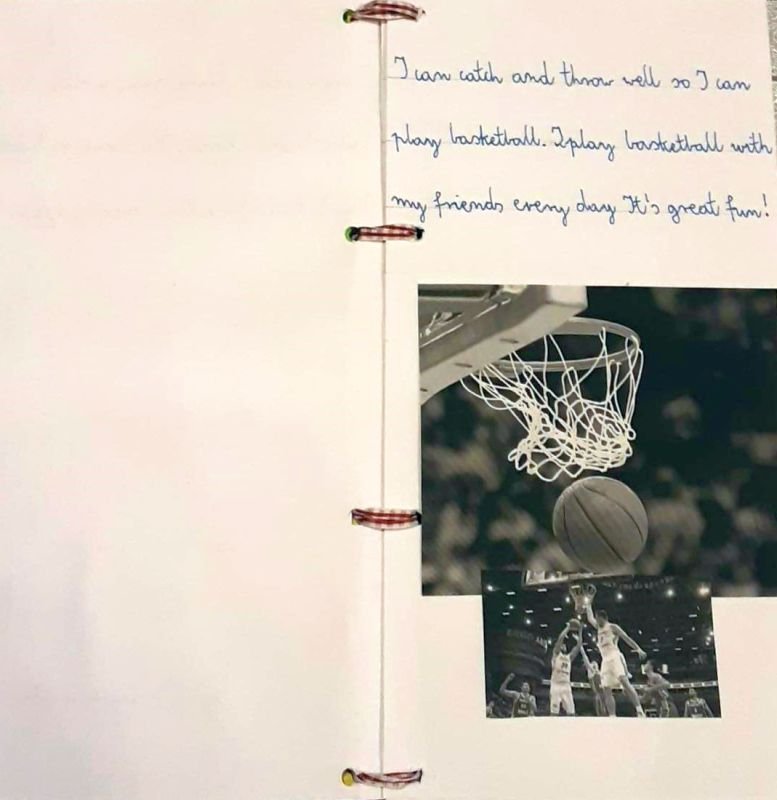 I can catch and throw well so I can
play basketball. I play basketball with
my friends every day It's great fun!